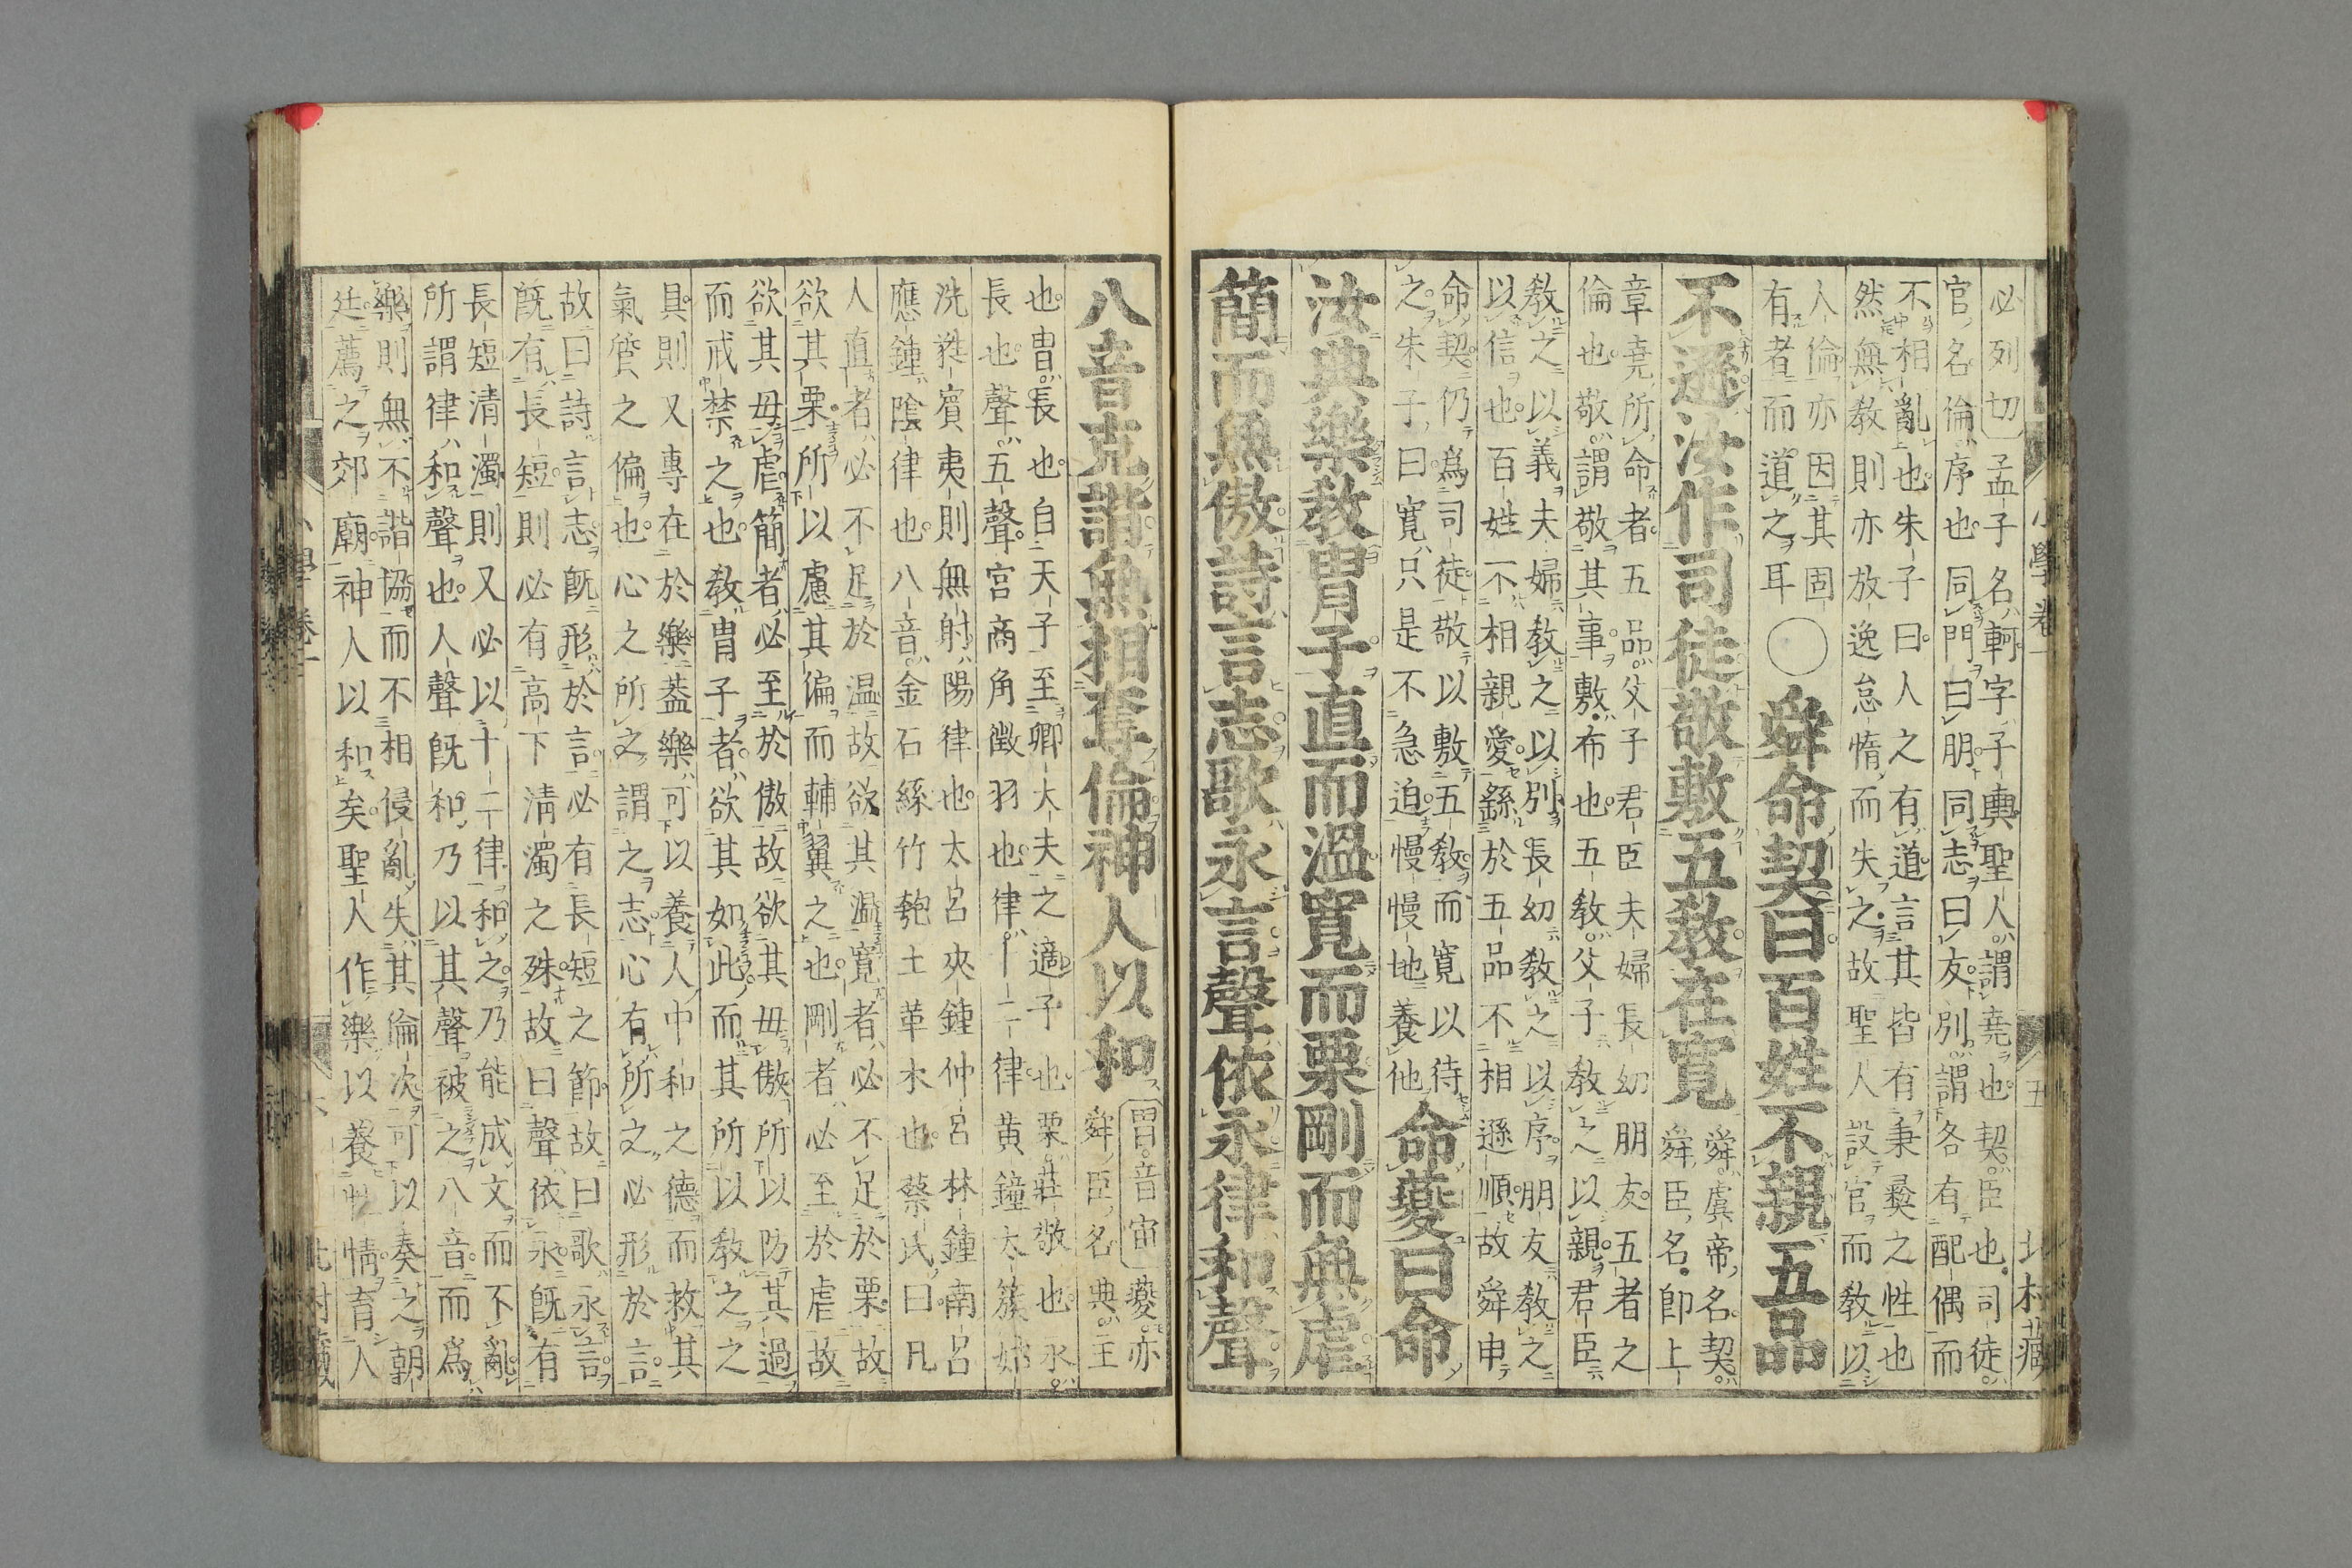 小學卷一　五　北村藏
必列切孟子名軻字子輿聖人謂堯也契臣也司徒
官名倫序也同門曰朋同志曰友別謂各有配偶而
不相亂也朱子曰人之有道言其皆有秉彜之性也
然無教則亦放逸怠惰而失之故聖人設官而教以
人倫亦因其固
有者而道之耳
○舜命契曰百姓不親五品
不遜汝作司徒敬敷五教在寬
舜虞帝名契
舜臣名即上
章堯所命者五品父子君臣夫婦長幼朋友五者之
倫也敬謂敬其事敷布也五教父子教之以親君臣
教之以義夫婦教之以別長幼教之以序朋友教之
以信也百姓不相親愛繇於五品不相遜順故舜申
命契仍爲司徒敬以敷五教而寬以待
之朱子曰寬只是不急迫慢慢地養他
命夔曰命
汝典樂教冑子直而溫寬而栗剛而無虐
簡而無傲詩言志歌永言聲依永律和聲
八音克諧無相奪倫神人以和
冑音宙　夔亦
舜臣名典主
也冑長也自天子至卿大夫之適子也栗莊敬也永
長也聲五聲宮商角徵羽也律十二律黃鐘太簇姑
洗蕤賓夷則無射陽律也太呂夾鍾仲呂林鍾南呂
應鍾陰律也八音金石絲竹匏土革木也蔡氏曰凡
人直者必不足於温故欲其温寬者必不足於栗故
欲其栗所以慮其偏而輔翼之也剛者必至於虐故
欲其毋虐簡者必至於傲故欲其毋傲所以防其過
而戒禁之也教冑子者欲其如此而其所以教之之
具則又專在於樂蓋樂可以養人中和之德而救其
氣質之偏也心之所之謂之志心有所之必形於言
故曰詩言志既形於言必有長短之節故曰歌永言
既有長短則必有高下清濁之殊故曰聲依永既有
長短清濁則又必以十二律和之乃能成文而不亂
所謂律和聲也人聲既和乃以其聲被之八音而爲
樂則無不諧協而不相侵亂失其倫次可以奏之朝
廷薦之郊廟神人以和矣聖人作樂以養性情育人
小學卷一　北村藏